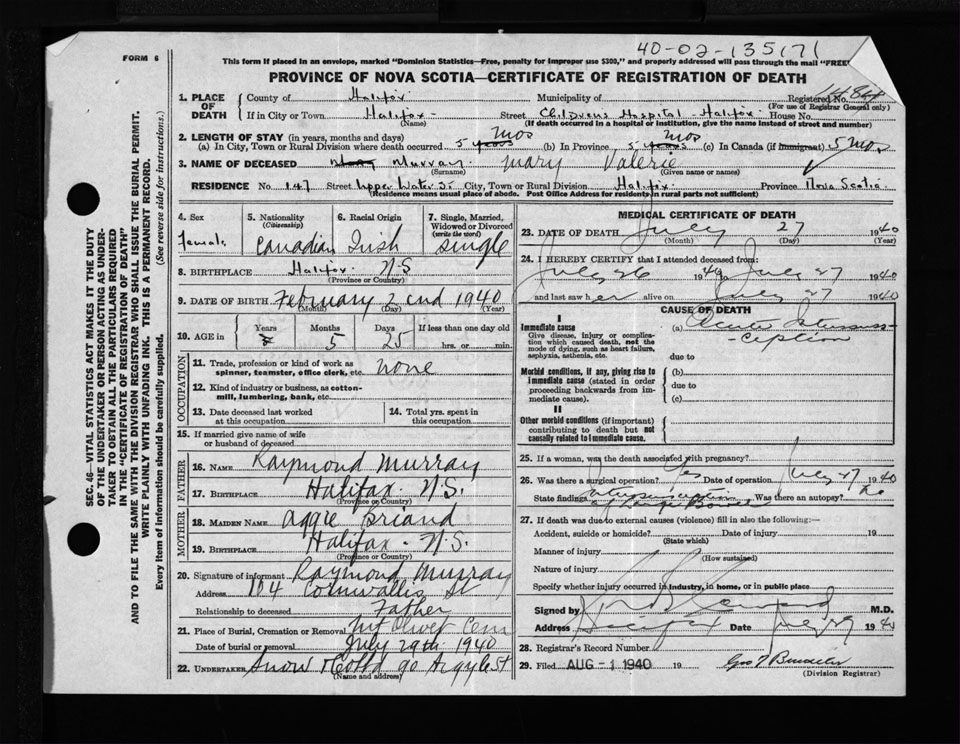 40-02-135171
FORM 6
This form if placed in an envelope, marked "Dominion Statistics—Free, penalty for improper use $300," and properly addressed will pass through the mail "FREE"
PROVINCE OF NOVA SCOTIA—CERTIFICATE OF REGISTRATION OF DEATH
1. PLACE OF DEATH
County of Halifax Municipality of Registered No.
(For use of Registrar General only)
If in City or Town Halifax Street Childrens Hospital Halifax House No.
(Name) (If death occurred in a hospital or institution, give the name instead of street and number)
2. LENGTH OF STAY (in years, months and days)
(a) In City, Town or Rural Division where death occurred 5 years mos (b) In Province 5 years mos (c) In Canada (if immigrant) 5 mos
3. NAME OF DECEASED Murray Mary Valerie
(Surname) (Given name or names)
RESIDENCE No. 147 Street Upper Water St City, Town or Rural Division Halifax Province Nova Scotia
(Residence means usual place of abode. Post Office Address for residents in rural parts not sufficient)
SEC. 46—VITAL STATISTICS ACT MAKES IT THE DUTY
OF THE UNDERTAKER OR PERSON ACTING AS UNDER-
TAKER TO OBTAIN ALL THE PARTICULARS REQUIRED
IN THE "CERTIFICATE OF REGISTRATION OF DEATH"
AND TO FILE THE SAME WITH THE DIVISION REGISTRAR WHO SHALL ISSUE THE BURIAL PERMIT.
WRITE PLAINLY WITH UNFADING INK. THIS IS A PERMANENT RECORD.
Every item of information should be carefully supplied. (See reverse side for instructions.)
4. Sex Female
5. Nationality (Citizenship) Canadian
6. Racial Origin Irish
7. Single, Married, Widowed or Divorced (write the word) single
8. BIRTHPLACE Halifax N.S
(Province or Country)
9. DATE OF BIRTH February 2nd 1940
(Month) (Day) (Year)
10. AGE in Years Months 5 Days 25 If less than one day old
hrs. or min.
OCCUPATION
11. Trade, profession or kind of work as spinner, teamster, office clerk, etc. none
12. Kind of industry or business, as cotton-mill, lumbering, bank, etc.
13. Date deceased last worked at this occupation
14. Total yrs. spent in this occupation
15. If married give name of wife or husband of deceased
FATHER
16. NAME Raymond Murray
17. BIRTHPLACE Halifax N.S.
(Province or Country)
MOTHER
18. MAIDEN NAME Aggie Briand
19. BIRTHPLACE Halifax - N.S.
(Province or Country)
20. Signature of informant Raymond Murray
Address 104 Cornwallis St
Relationship to deceased Father
21. Place of Burial, Cremation or Removal Mt Olivet Cem
Date of burial or removal July 29th 1940
22. UNDERTAKER Snow & Co Ltd 90 Argyle St
(Name and address)
MEDICAL CERTIFICATE OF DEATH
23. DATE OF DEATH July 27 1940
(Month) (Day) (Year)
24. I HEREBY CERTIFY that I attended deceased from:
July 26 1940 to July 27 1940
and last saw her alive on July 27 1940
CAUSE OF DEATH
I
Immediate cause
Give disease, injury or complication which caused death, not the mode of dying, such as heart failure, asphyxia, asthenia, etc.
(a) Acute Intussus-
-ception
due to
Morbid conditions, if any, giving rise to immediate cause (stated in order proceeding backwards from immediate cause).
(b)
due to
(c)
II
Other morbid conditions (if important) contributing to death but not causally related to immediate cause.
25. If a woman, was the death associated with pregnancy?
26. Was there a surgical operation? Yes Date of operation July 27 1940
State findings Intussusception of Large Bowel Was there an autopsy? No
27. If death was due to external causes (violence) fill in also the following:—
Accident, suicide or homicide? Date of injury 19
(State which)
Manner of injury
(How sustained)
Nature of injury
Specify whether injury occurred in industry, in home, or in public place
Signed by M.D.
Address Halifax Date July 29 1940
28. Registrar's Record Number
29. Filed AUG -1 1940 19
(Division Registrar)